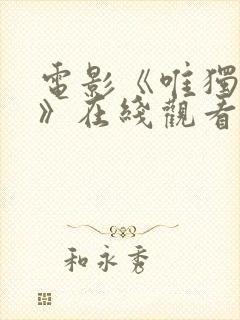 電影《唯獨
》在綫觀看
和永秀